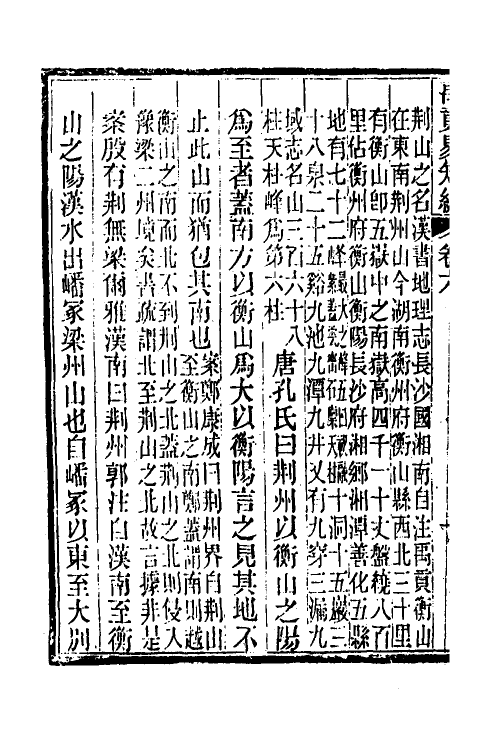 禹貢易知編 卷六
荆山之名漢書地理志長沙國湘南自注禹貢衡山
在東南荆州山今湖南衡州府衡山縣西北三十里
有衡山卽五嶽中之南嶽高四千一十丈盤繞八百
里佔衡州府衡山衡陽長沙府湘鄉湘潭善化五縣
地有七十二峰最大之峰五曰
十洞十五巖三
十八泉二十五谿九池九潭九井又有九穿三漏九
域志名山三百六十八
柱天柱峰爲第六柱
唐孔氏曰荆州以衡山之陽
爲至者蓋南方以衡山爲大以衡陽言之見其地不
止此山而猶包其南也
案鄭康成曰荆州界自荆山
至衡山之南鄭蓋謂南則越
衡山之南而北不到荆山之北蓋荆山之北則侵入
豫梁二州境矣書疏謂北至荆山之北故言據非是
案殷有荆無梁爾雅漢南曰荆州郭注自漢南至衡
山之陽漢水出嶓冢梁州山也自嶓冢以東至大別